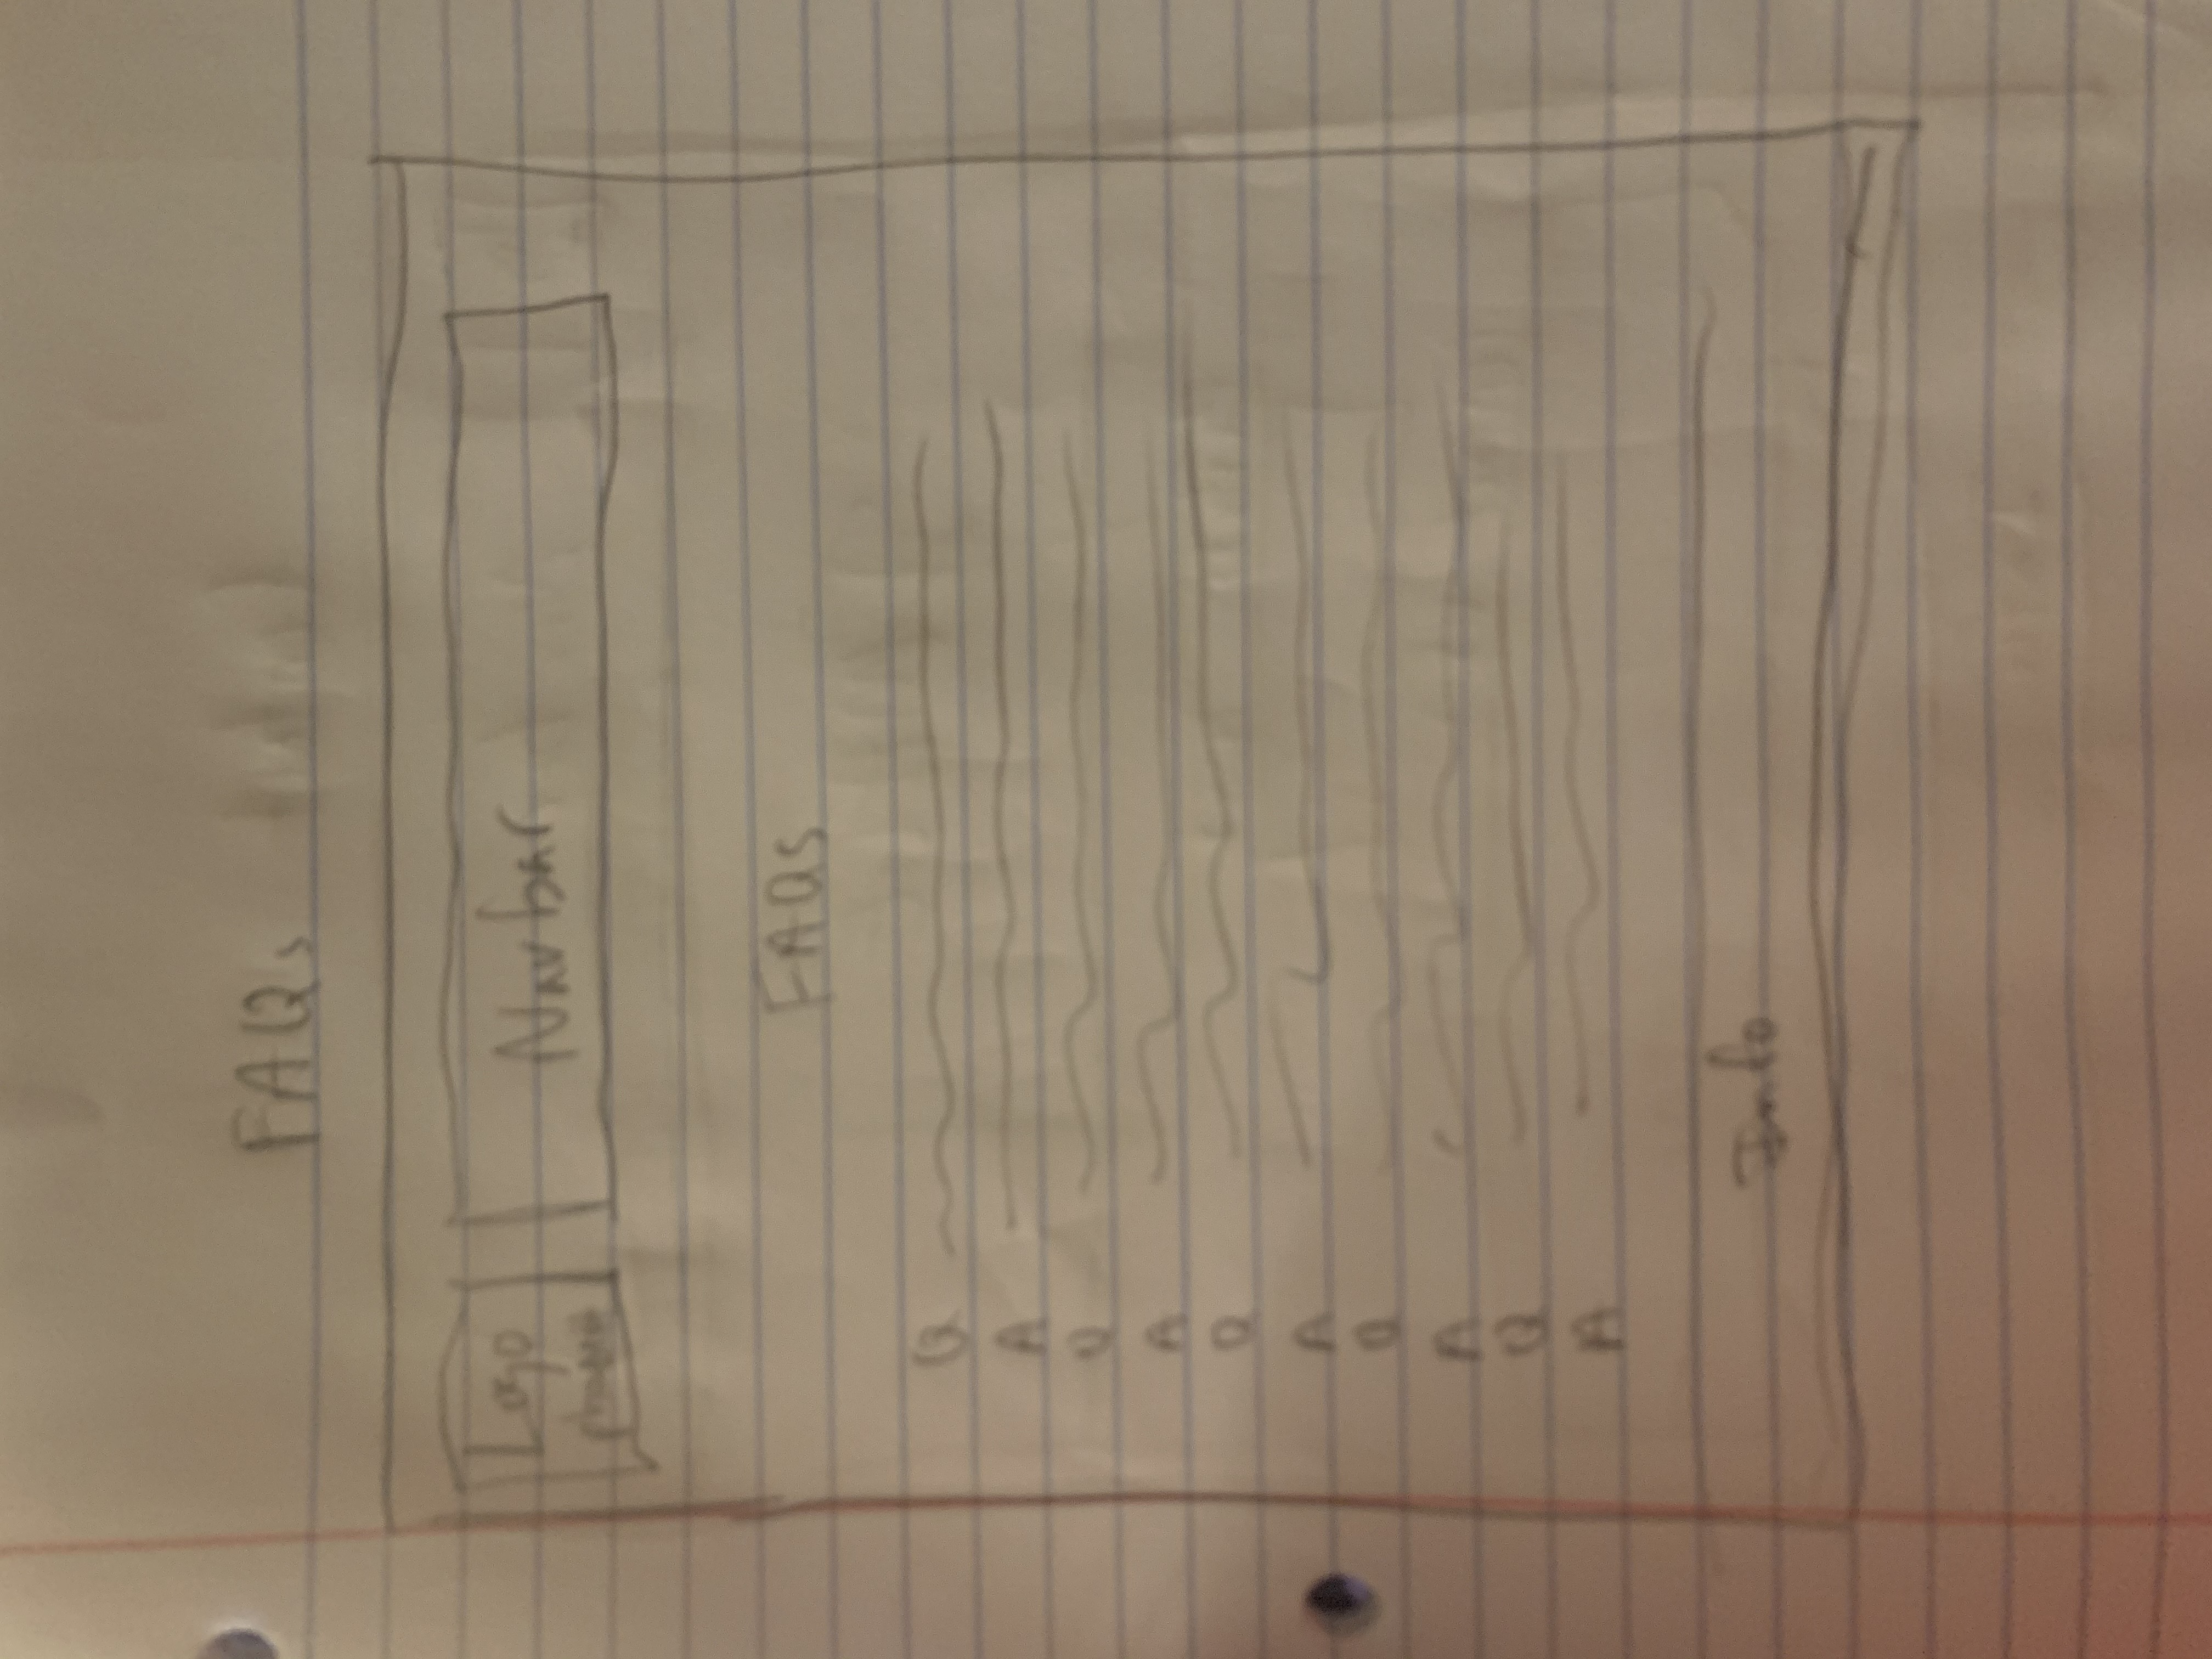 FAQs
Logo
Navbar
FAQs
Q
A
Q
A
Q
A
Q
A
Q
A
Info